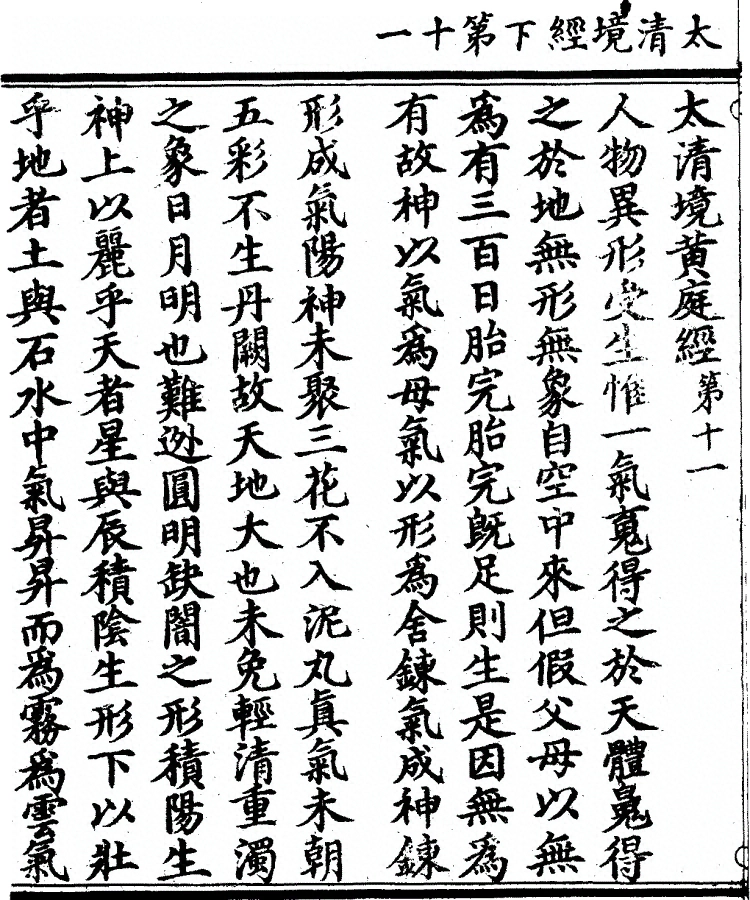 太清境經下第十一
太清境黄庭經第十一
人物異形受生惟一氣䰟得之於天體鬼得
之於地無形無象自空中來但假父母以無
爲有三百日胎完胎完旣足則生是因無爲
有故神以氣爲母氣以形爲舍鍊氣成神鍊
形成氣陽神未聚三花不入泥丸眞氣未朝
五彩不生丹闕故天地大也未免輕清重濁
之象日月明也難逊圓明缺闇之形積陽生
神上以麗乎天者星與辰積陰生形下以壯
乎地者土與石水中氣昇昇而爲霧爲雲氣